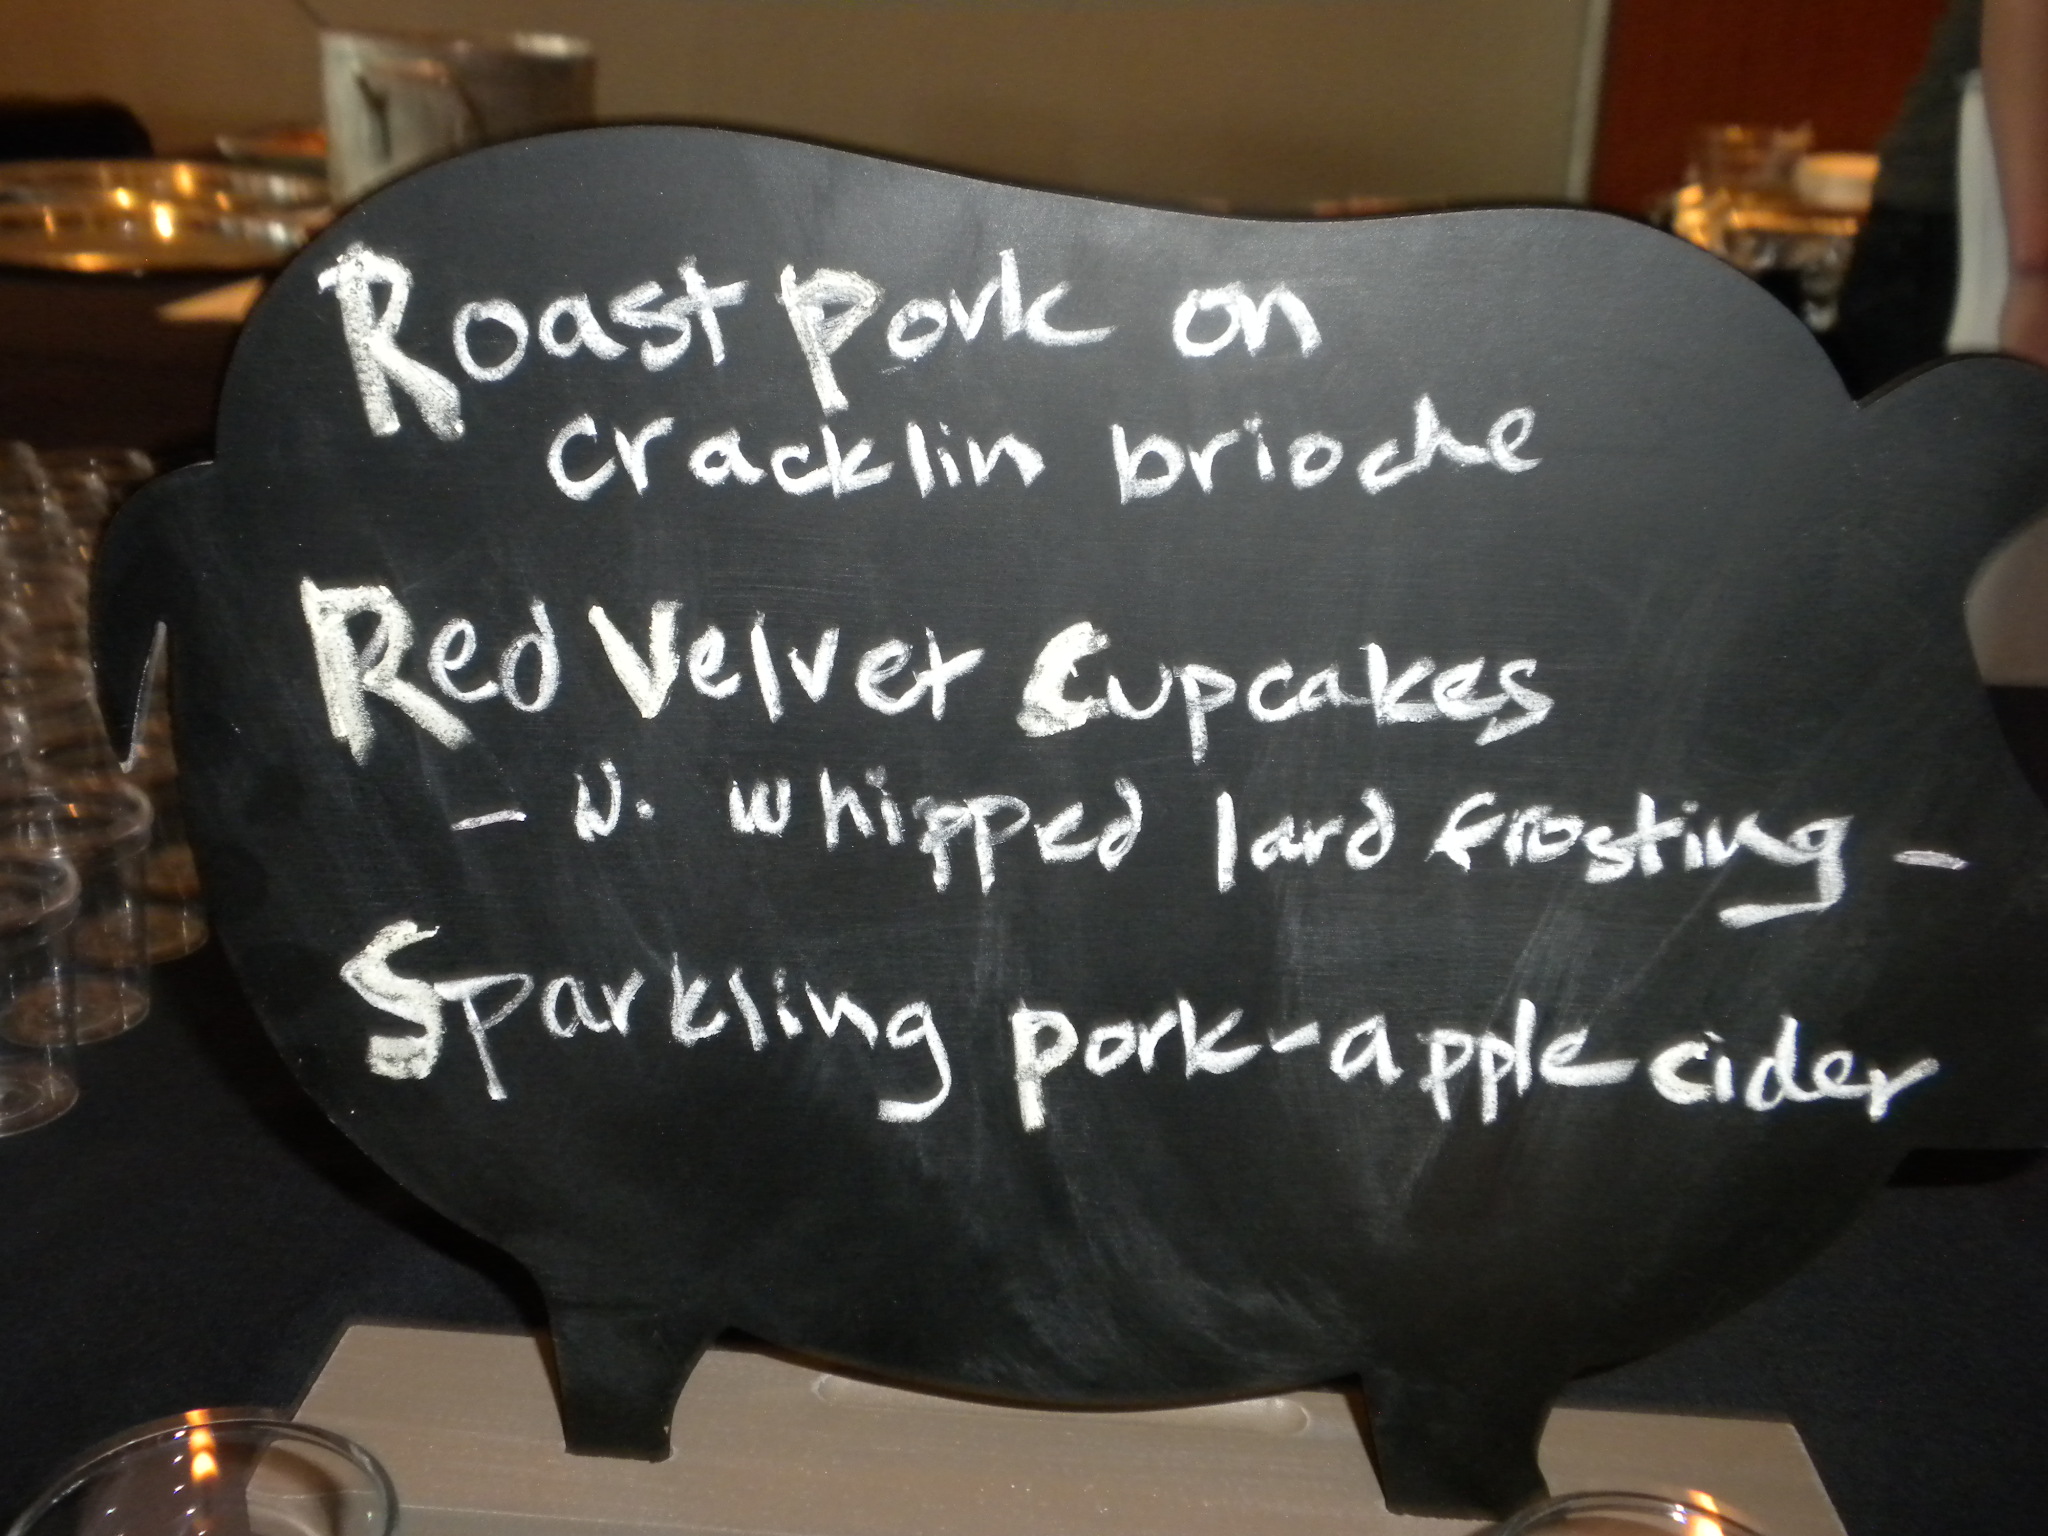 Roast Pork on
cracklin brioche
Red Velvet Cupcakes
- w. whipped lard frosting -
Sparkling pork-apple cider